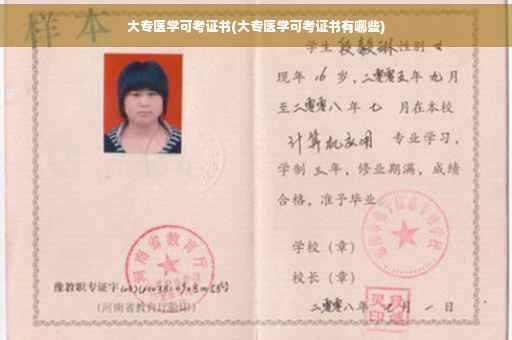 大专医学可考证书(大专医学可考证书有哪些)
样本
学生 段毅琳 性别 女
现年 16 岁，二零零五年 九 月
至二零零八年 七 月在本校
计算机应用 专业学习，
学制 三 年，修业期满，成绩
合格，准予毕业
学校（章）
校长（章）
二零零八年 七 月 一 日
河南省教育厅
豫教职专证字
(河南省教育厅验印)